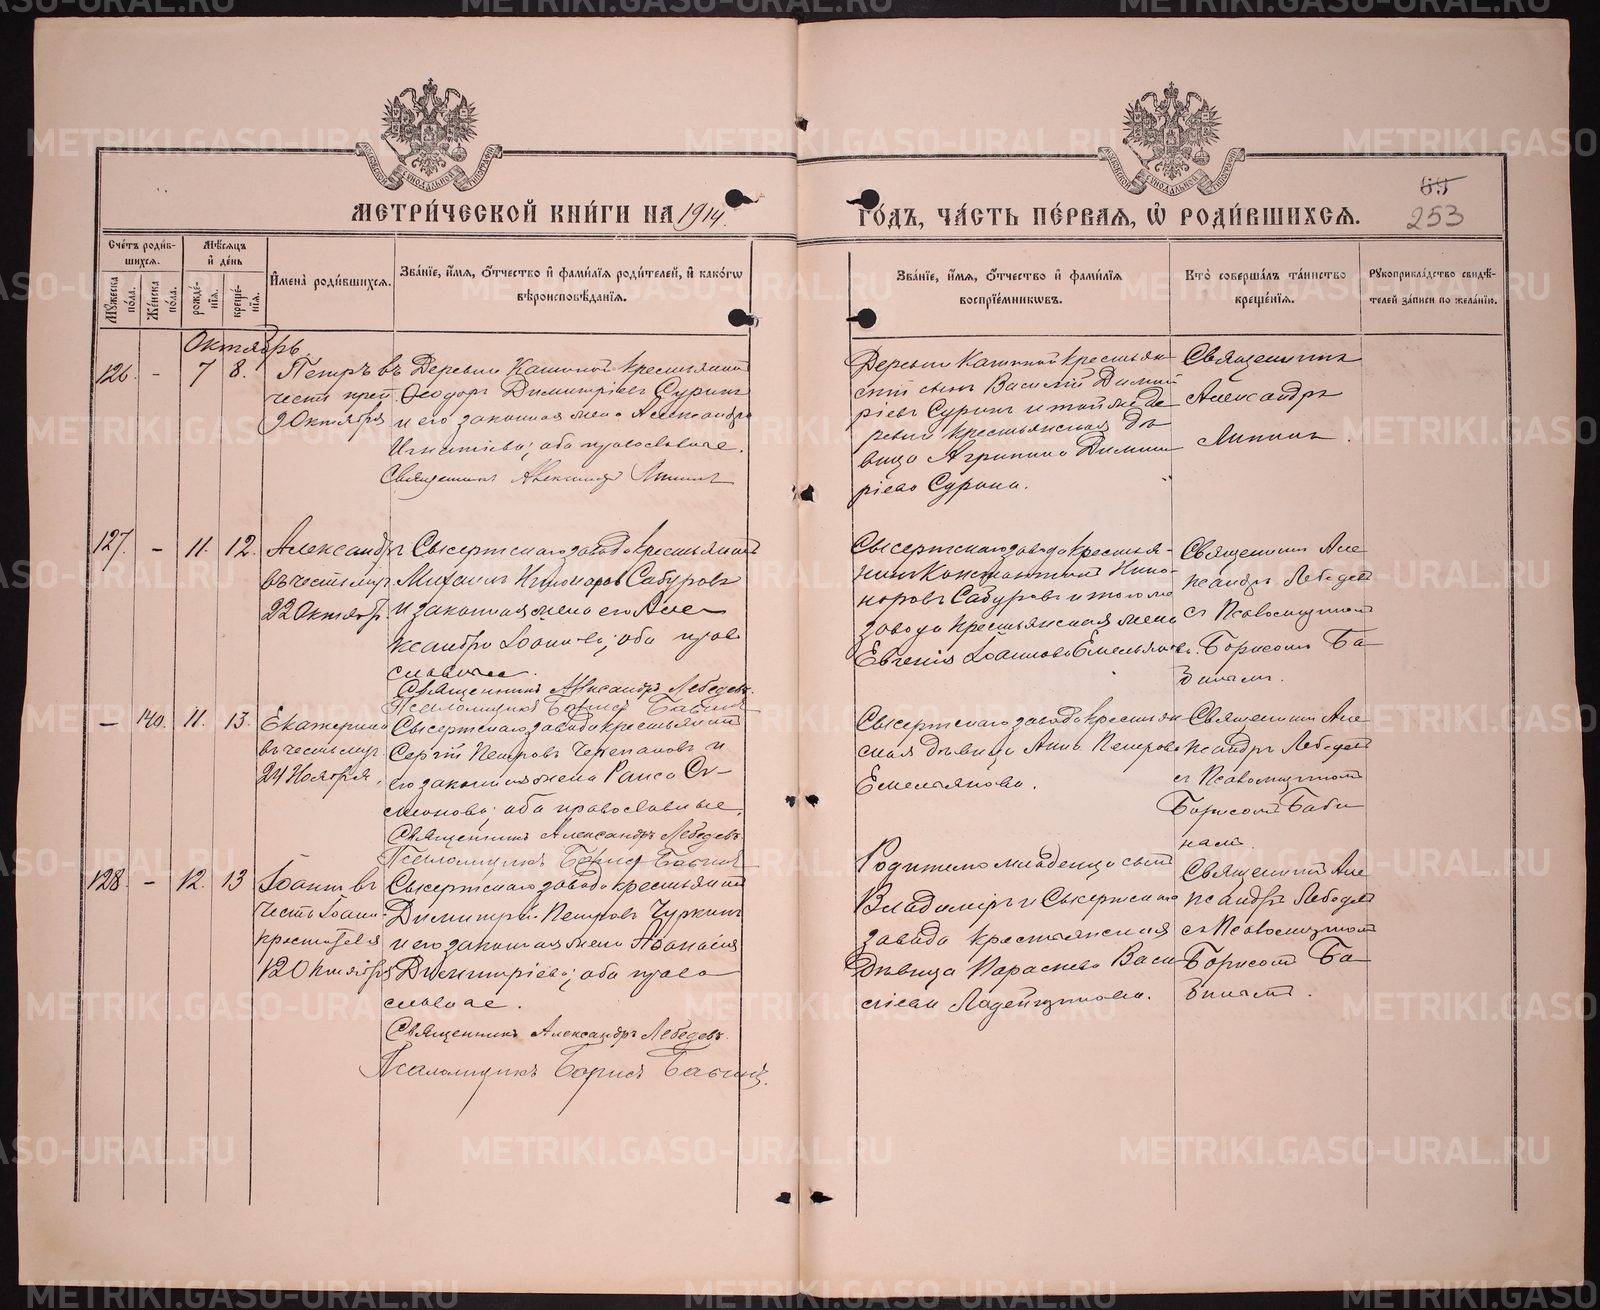 МЕТРИ́ЧЕСКОЙ КНИ́ГИ НА 1914
ГО́ДЪ, ЧА́СТЬ ПЕ́РВАЯ, Ѿ РОДИ́ВШИХСЯ.
69
253
Сче́тъ роди́в-
шихся.
Мꙋ́жеска по́ла.
Же́нска по́ла.
Мѣ́сяцъ и҆ де́нь
рожде́-
нїя.
креще́-
нїя.
И҆мена̀ роди́вшихся.
Зва́нїе, и҆́мя, о҆́тчество и҆ фами́лїя роди́телей, и҆ како́гѡ
вѣроисповѣ́данїя.
Зва́нїе, и҆́мя, о҆́тчество и҆ фами́лїя
воспрїе́мникѡвъ.
Кто̀ соверша́лъ та́инство
креще́нїя.
Рꙋкоприкла́дство свидѣ́-
телей за́писи по жела́нїю.
Октябрь
126. - 7 8. Петръ въ
чест прп.
9 Октября
Деревни Кашиной крестьянинъ
Ѳеодоръ Димитріевъ Суринъ
и его законная жена Александра
Игнатіева; оба православные.
Священникъ Александръ
Деревни Кашиной крестьян-
скій сынъ Василій Димит
ріевъ Суринъ и той же де
ревни крестьянская дѣ
вица Агрипина Димит
ріева Сурина.
Священникъ
Александръ
127. - 11. 12. Александръ
въ честь муч.
22 Октябр.
Сысертскаго завода крестьянинъ
Михаилъ Никаноровъ Сабуровъ
и законная жена его Але-
ксандра Іоаннова; оба право
славные.
Священникъ Александръ Лебедевъ.
Псаломщикъ Борисъ Бабинъ
Сысертскаго завода крестья-
нинъ Константинъ Ника-
норовъ Сабуровъ и того же
завода крестьянская жена
Евгенія Іоаннова Емельянова.
Священникъ Але
ксандръ Лебедевъ
съ Псаломщикомъ
Борисомъ Ба-
бинымъ.
- 140. 11. 13. Екатерина
въ честь муч.
24 Ноября.
Сысертскаго завода крестьянинъ
Сергій Петровъ Черепановъ и
его законная жена Раиса Си-
меонова; оба православные.
Священникъ Александръ Лебедевъ.
Псаломщикъ Борисъ Бабинъ
Сысертскаго завода крестьян
ская дѣвица Анна Петрова
Емельянова.
Священникъ Але
ксандръ Лебедевъ
съ Псаломщикомъ
Борисомъ Баби
нымъ
128. - 12. 13 Іоаннъ въ
честь Іоанн.
12 Октября
Сысертскаго завода крестьянинъ
Димитрій Петровъ Чуркинъ
и его законная жена Аѳанасія
Димитріева; оба право
славные.
Священникъ Александръ Лебедевъ.
Псаломщикъ Борисъ Бабинъ.
Родителю младенца сынъ
Владиміръ и Сысертскаго
завода крестьянская
дѣвица Параскева Васи
Священникъ Але
ксандръ Лебедевъ
съ Псаломщикомъ
Борисомъ Ба-
бинымъ.
METRIKI.GASO-URAL.RU